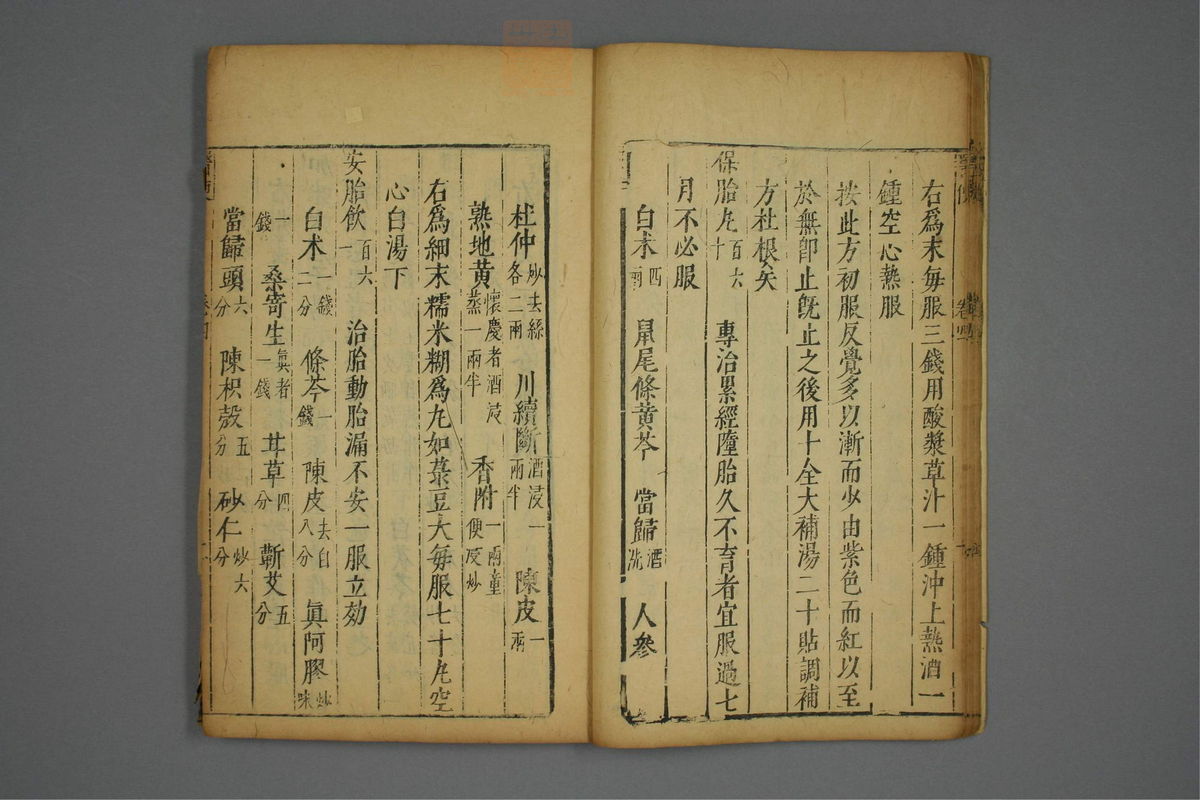 右爲末每服三錢用酸漿草汁一鍾沖上熱酒一
鍾空心熱服
按此方初服反覺多以漸而少由紫色而紅以至
於無卽止旣止之後用十全大補湯二十貼調補
方杜根矣
保胎丸百六十 專治累經墮胎久不育者宜服過七
月不必服
白朮四兩 鼠尾條黄芩 當歸酒洗 人參
杜仲炒去絲各二兩 川續斷酒浸一兩半 陳皮一兩
熟地黄懷慶者酒浸蒸一兩半 香附一兩童便浸炒
右爲細末糯米糊爲丸如菉豆大每服七十丸空
心白湯下
安胎飲百六一 治胎動胎漏不安一服立効
白朮一錢二分 條芩一錢 陳皮去白八分 眞阿膠炒珠
一錢 桑寄生眞者一錢 甘草四分 蘄艾五分
當歸頭六分 陳枳殼五分 砂仁炒六分